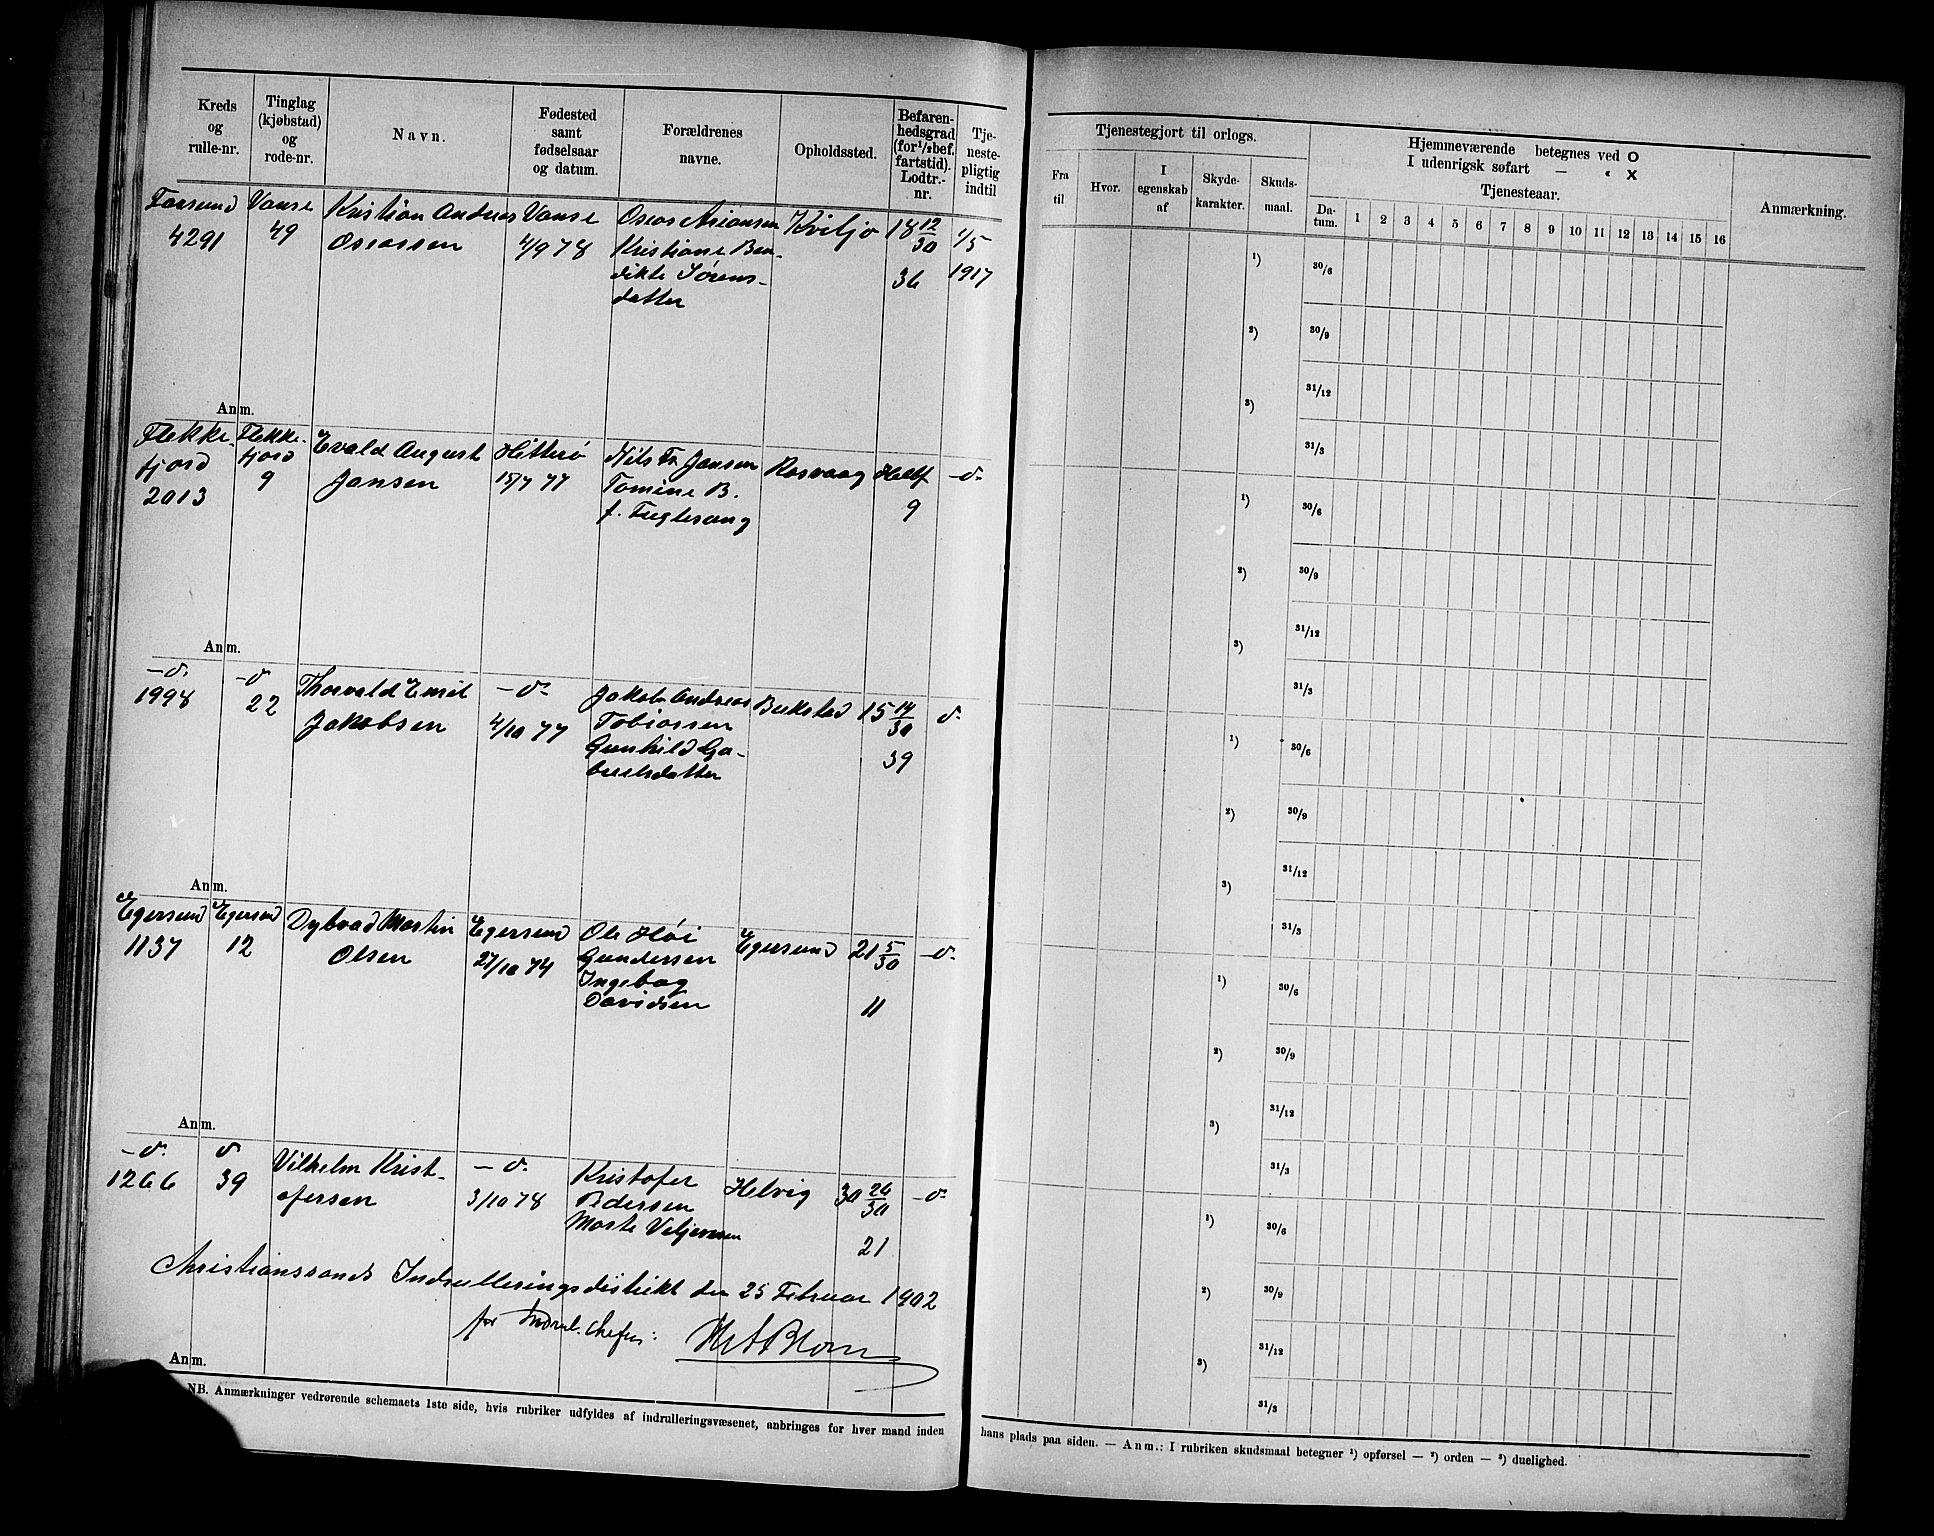 Kreds og rulle-nr.
Tinglag (kjøbstad) og rode-nr.
Navn.
Fødested samt fødselsaar og datum.
Forældrenes navne.
Opholdssted.
Befarenhedsgrad (for ½ bef. fartstid). Lodtr.-nr.
Tjenestepligtig indtil
Farsund Vanse Kristian Andreas Vanse Oseas Asiansen Kviljo 18 12/30 1/5
4291 49 Oseassen 4/9 78 Kristiane Ben-
dikte Sørens- 36 1917
datter
Anm.
Flekke- Flekke- Evald August Hitterø Nils Fr. Jansen Rasvaag Halvf -d-
fjord fjord Jansen 15/7 77 Tomine B. 9
2013 9 f. Fuglesang
Anm.
-d- -d- Thorvald Emil -d- Jakob Andreas Bukstad 15 14/30 d-
1998 22 Jakobsen 4/10 77 Tobiassen
Gunhild Ga- 39
brielsdatter
Anm.
Egersund Egersund Dybvad Martin Egersund Ole Høi Egersund 21 5/30 -d-
1137 12 Olsen 27/10 74 Gundersen
Ingebog
Davidsen 11
Anm.
-d- d -d-
1266 39 Vilhelm Krist- Kristofer Helvig 30 26/30 -d-
ofersen 3/10 78 Pedersen
21
Christianssands Indrulleringsdistrikt den 25 Februar 1902
for Indrul. chefen:
Blom
Anm.
NB. Anmærkninger vedrørende schemaets 1ste side, hvis rubriker udfyldes af indrulleringsvæsenet, anbringes for hver mand inden
Tjenestegjort til orlogs.
Hjemmeværende betegnes ved O
I udenrigsk søfart — « X
Tjenesteaar.
Anmærkning.
Fra til
Hvor.
I egenskab af
Skyde-karakter.
Skuds-maal.
Da-tum. 1 2 3 4 5 6 7 8 9 10 11 12 13 14 15 16
¹) 30/6
²) 30/9
31/12
³)
31/3
¹) 30/6
²) 30/9
31/12
³)
31/3
¹) 30/6
²) 30/9
31/12
³)
31/3
¹) 30/6
²) 30/9
31/12
³)
31/3
¹) 30/6
²) 30/9
31/12
³)
31/3
hans plads paa siden. — Anm.: I rubriken skudsmaal betegner ¹) opførsel — ²) orden — ³) duelighed.